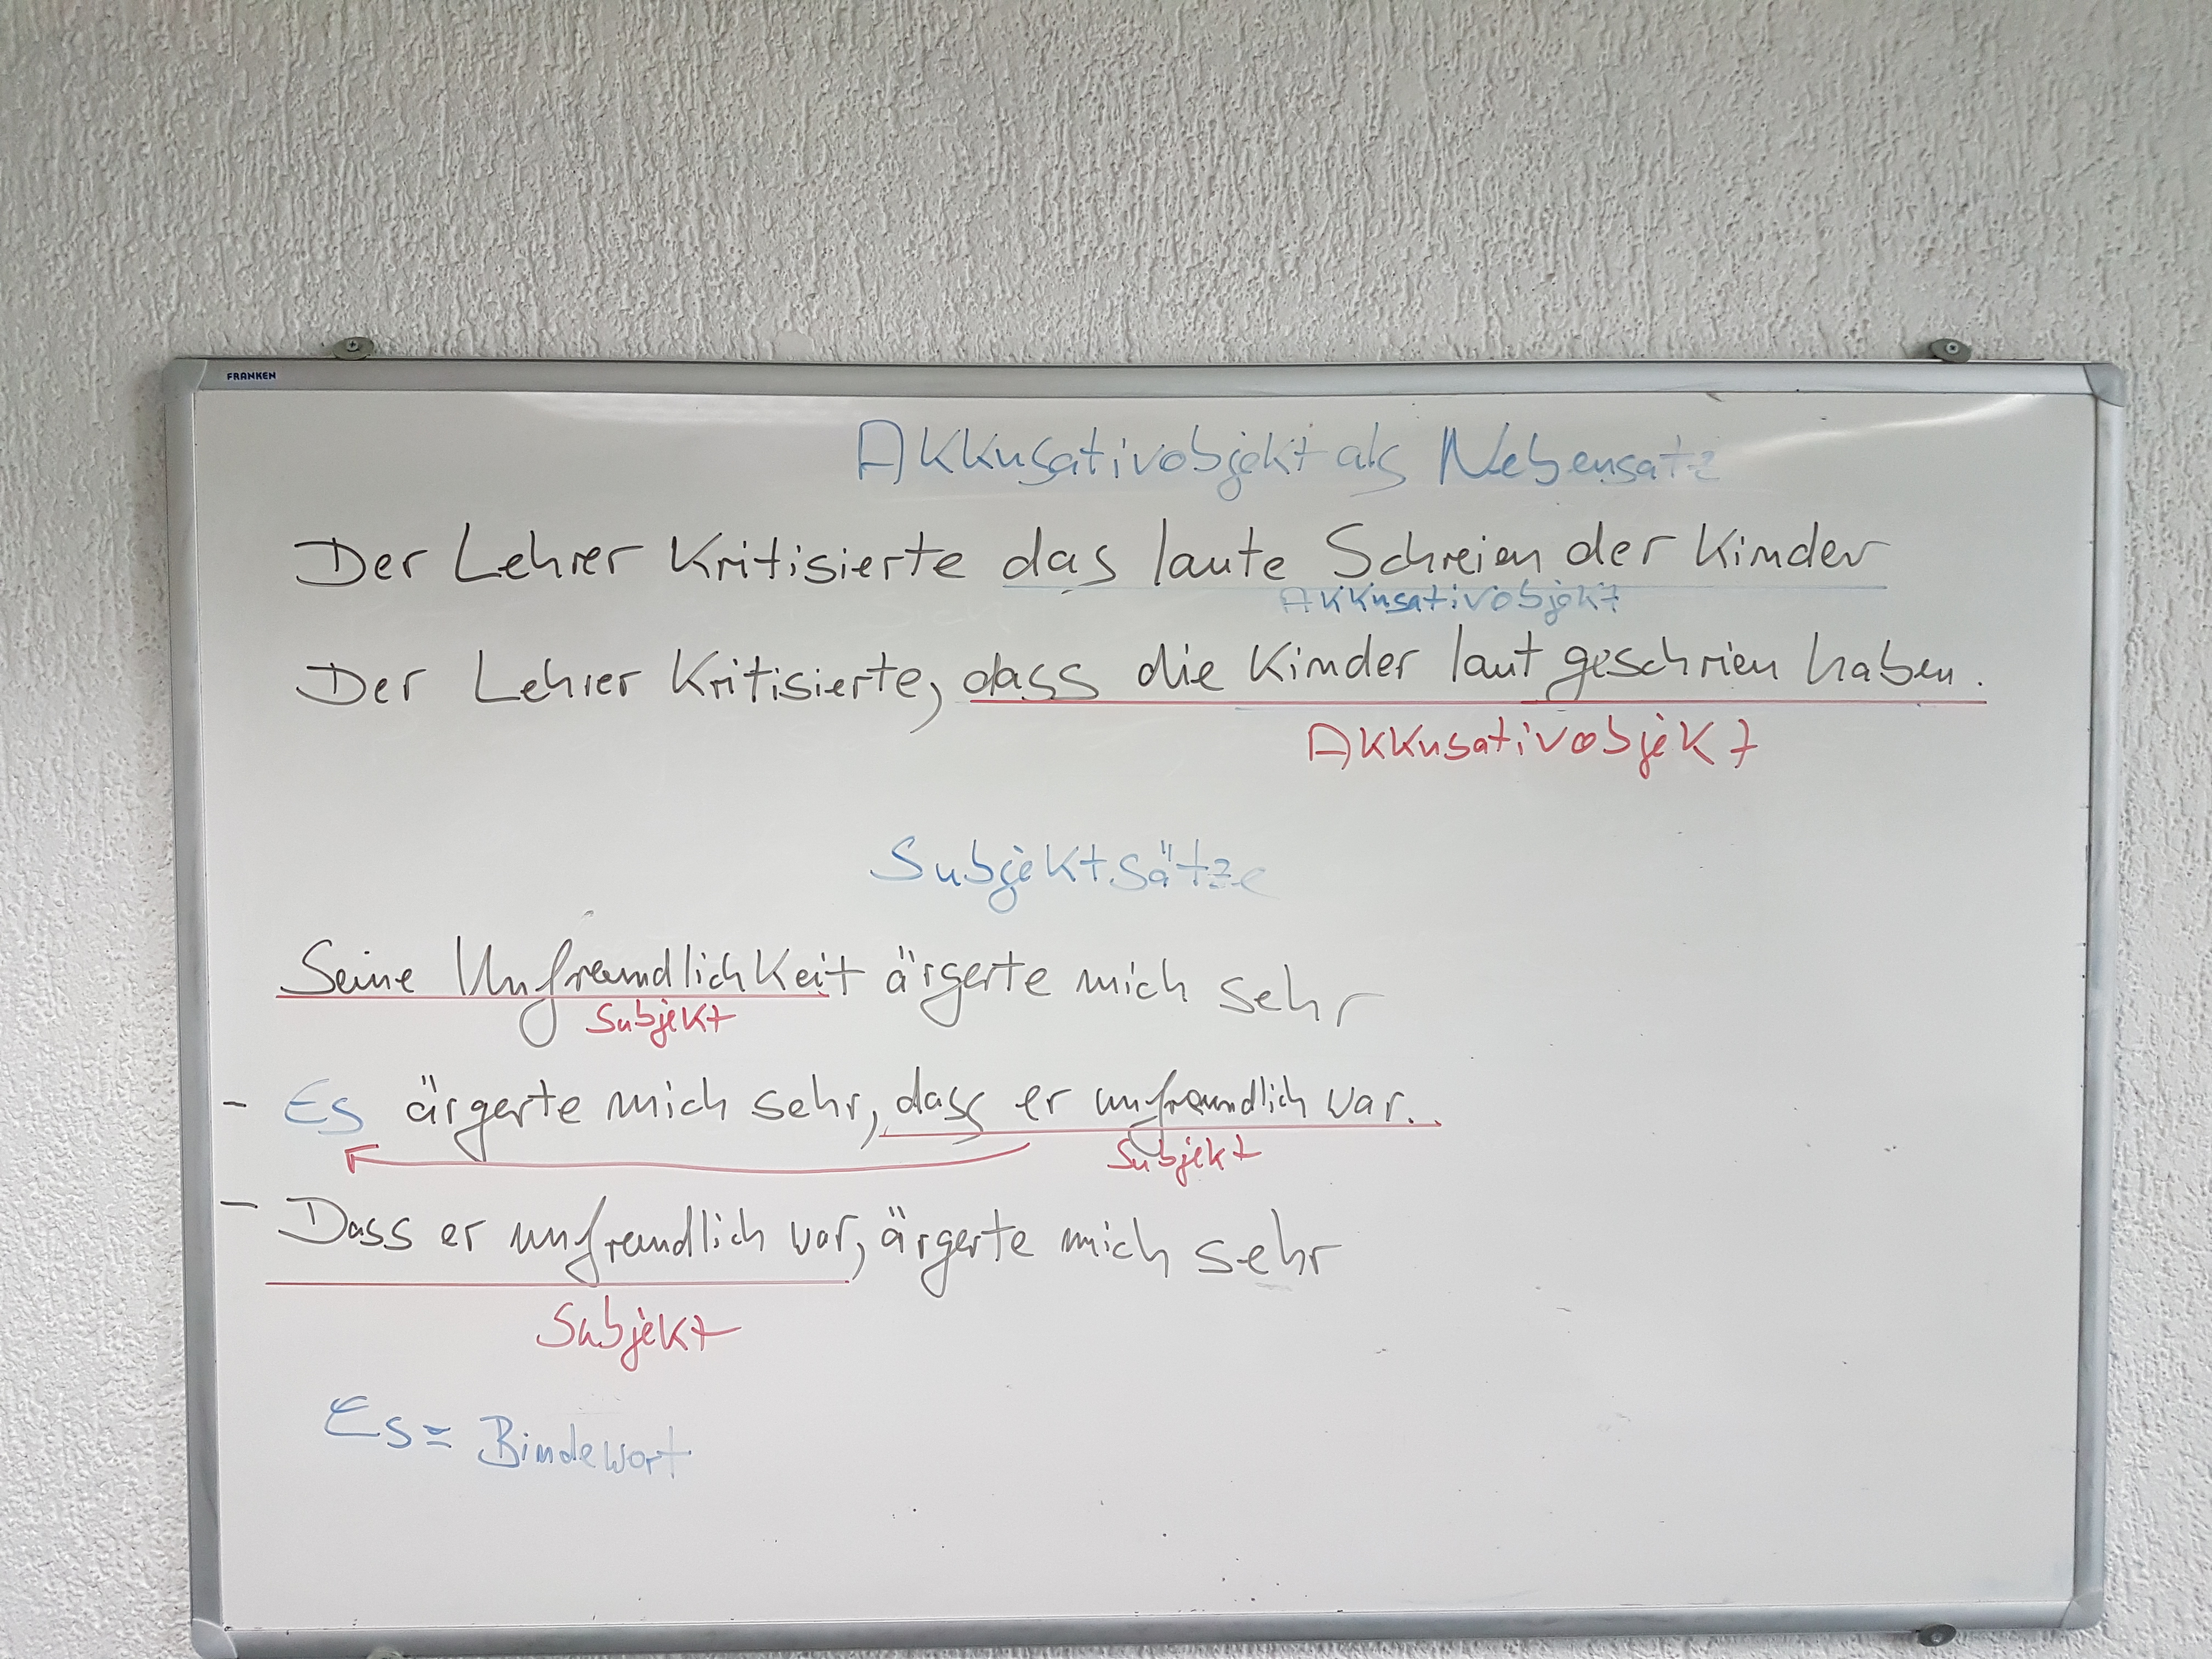 FRANKEN
Akkusativobjekt als Nebensatz
Der Lehrer kritisierte das laute Schreien der Kinder
Akkusativobjekt
Der Lehrer kritisierte, dass die Kinder laut geschrien haben.
Akkusativobjekt
Subjektsätze
Seine Unfreundlichkeit ärgerte mich sehr
Subjekt
- Es ärgerte mich sehr, dass er unfreundlich war.
Subjekt
- Dass er unfreundlich war, ärgerte mich sehr
Subjekt
Es = Bindewort